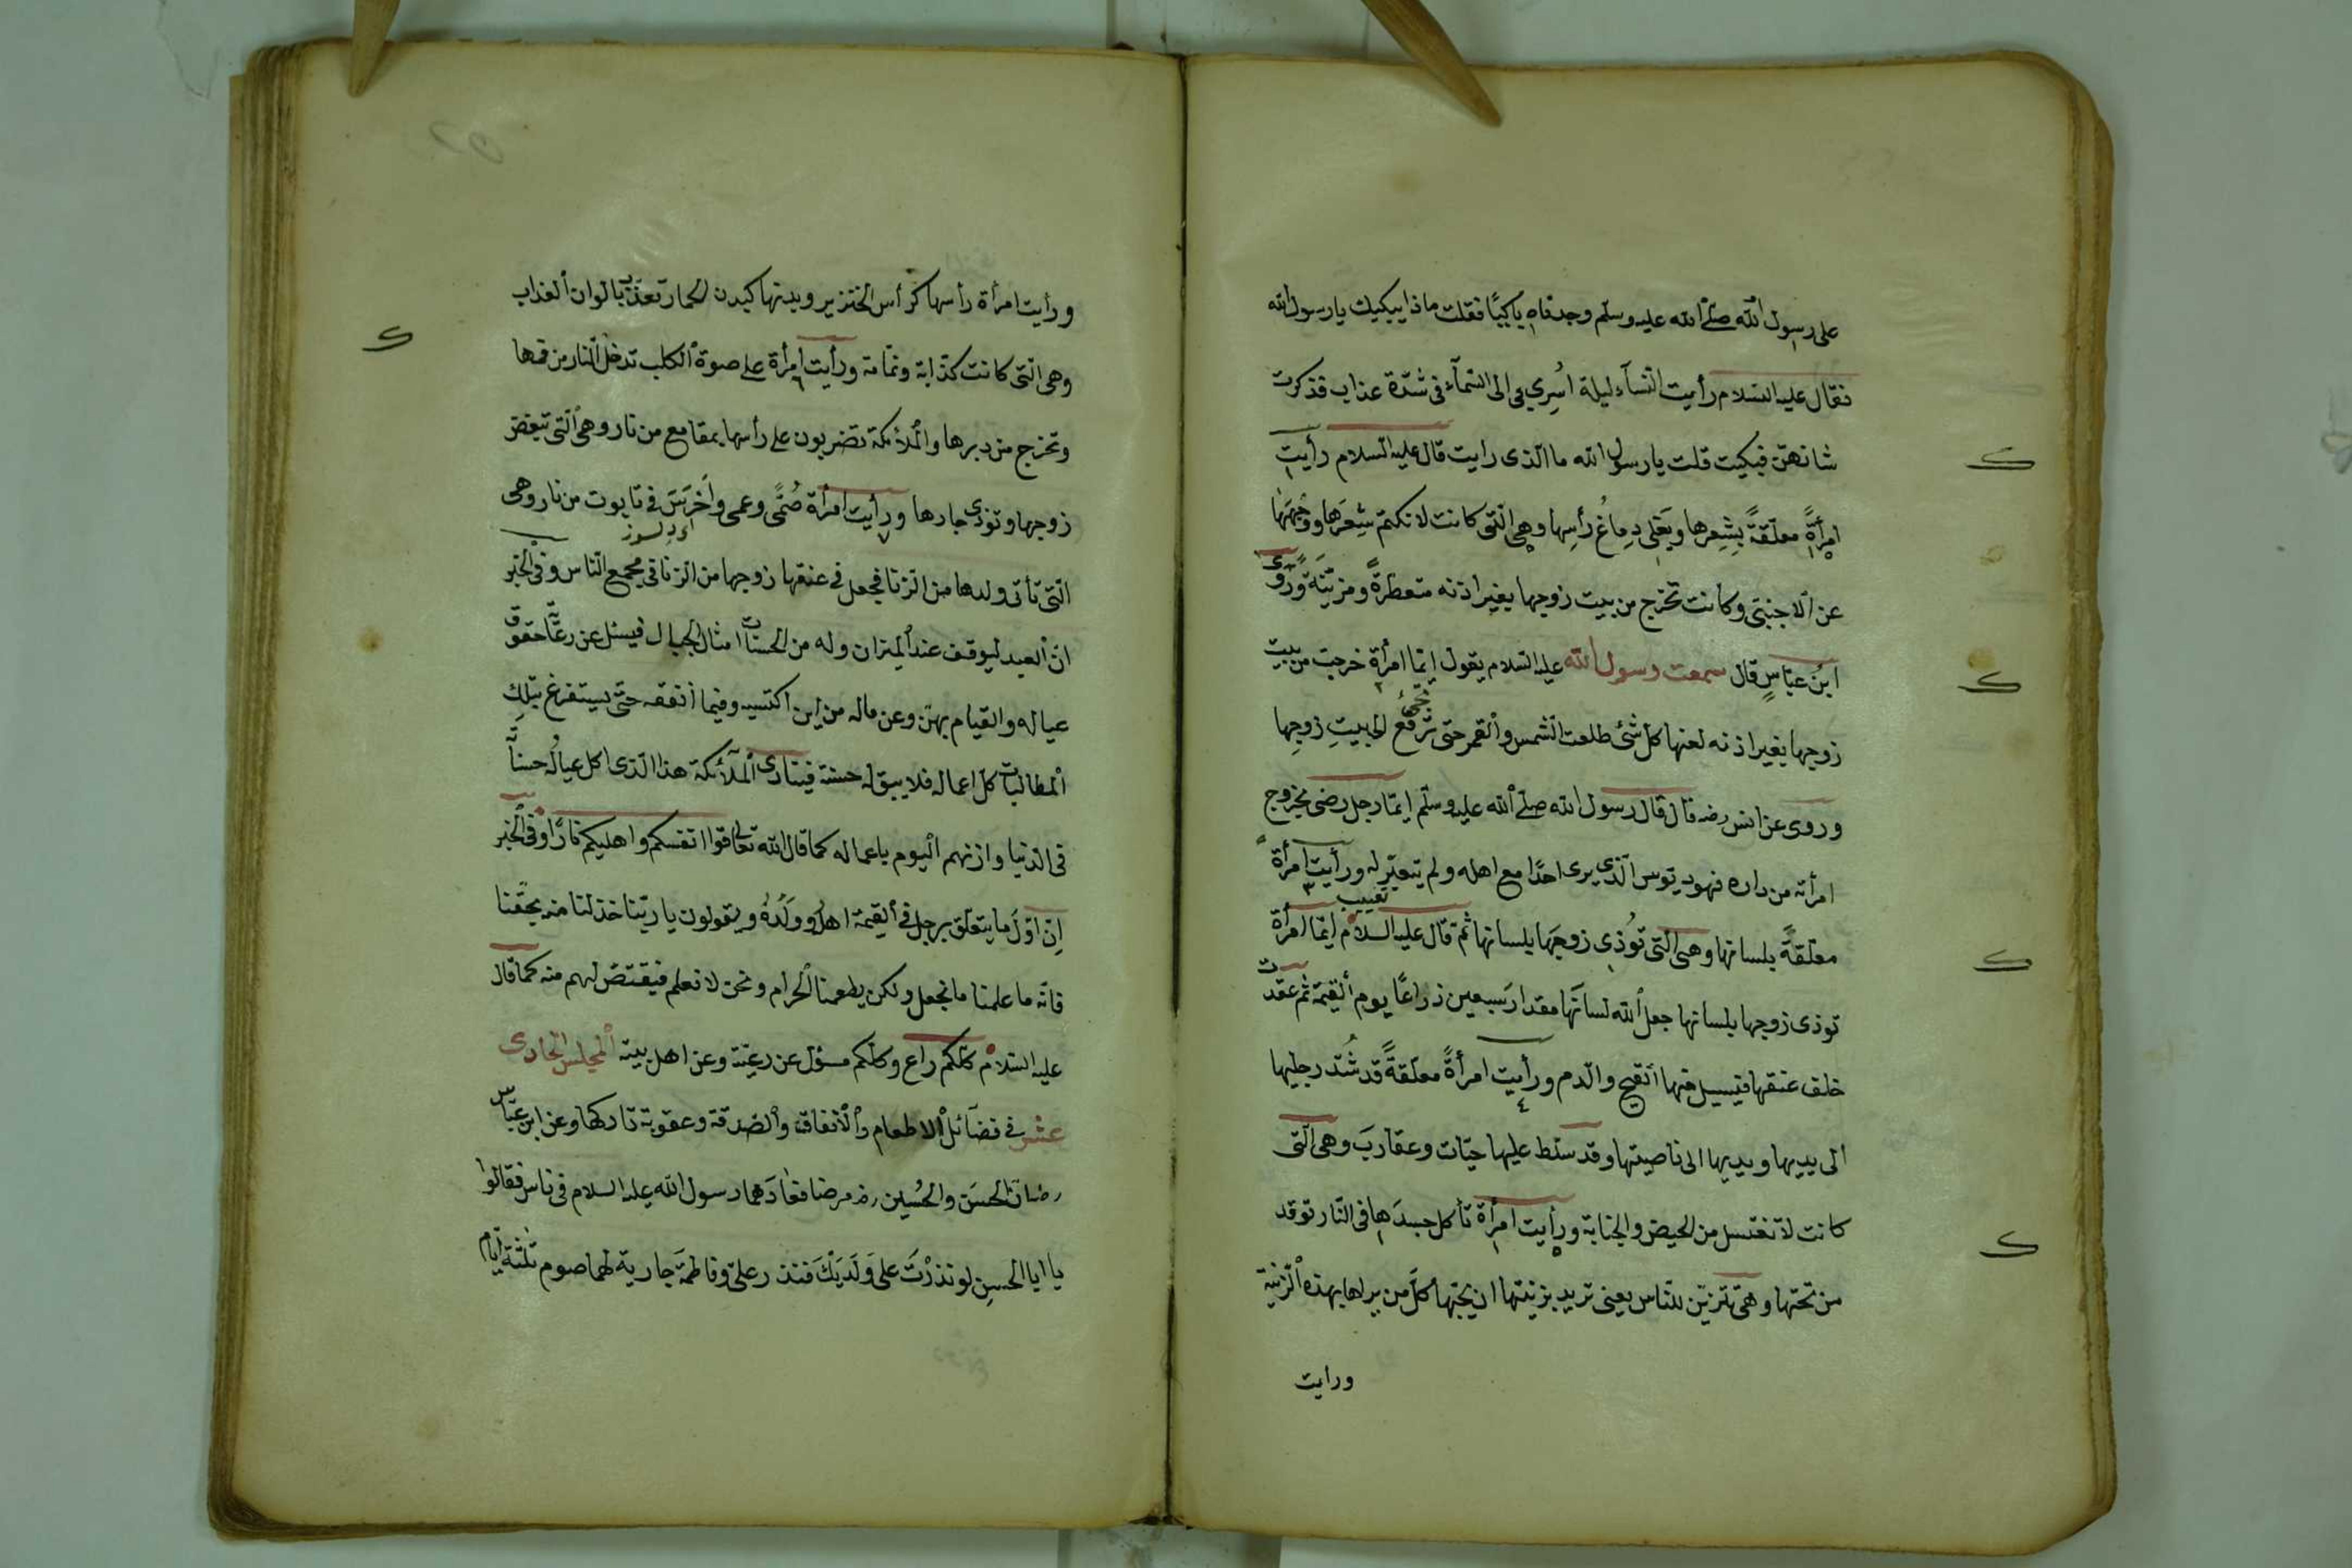 على رسول الله صلى الله عليه وسلم وجدناه باكيًا فقلت ماذا يبكيك يا رسول الله
فقال عليه السلام رأيت النسآء ليلة اُسرِي بي الى السمآء في شدّة عذاب فذكرت
شانهنّ فبكيت قلت يا رسول الله ما الذى رايت قال عليه السلام رأيت
امرأةً معلّقةً بشعرها ويَغلى دِماغُ رأسِها وهى الّتى كانت لا تكتم شعرَها ووجْهَها
عن الاجنبىّ وكانت تخرج من بيت زوجها بغير اذنه متعطرةً ومزيّنَةً وَرَوى
ابنُ عبّاسٍ قال سمعت رسول الله عليه السلام يقول ايّما امرأة خرجت من بيت
زوجها بغير اذنه لعنها كلّ شئ طلعت الشمس والقمر حتى ترفع الى بيتِ زوجِها
وروى عن انس رضه قال قال رسول الله صلّى الله عليه وسلّم ايّما رجل رضى بخروج
امرأته من داره فهو ديّوس الّذى يرى احدًا مع اهله ولم يتعيّر له ورأيت امرأة
معلّقةً بلسانها وهى الّتى تُوذى زوجَها بلسانها ثم قال عليه السلام ايّما امرأة
توذى زوجها بلسانها جعل الله لسانَها مقدار سبعين ذراعًا يوم القيمة ثم عقدت
خلف عنقها فيسيل منها القيح والدم ورأيت امرأةً معلّقةً قد شُدّ رجليها
الى يديها ويديها الى ناصيتها وقد سلّط عليها حيّات وعقاربَ وهى الّتى
كانت لا تغتسل من الحيض والجنابة ورأيت امرأة تأكل جسدَها فى النّار توقد
من تحتها وهى تتزيّن للنّاس يعنى تريد بزينتها ان يحبّها كلّ من يراها بهذه الزّينة
ورايت
ورأيت امرأة رأسها كرأس الخنزير وبدنها كبدن الحمار تعذّب بالوان العذاب
وهى الّتى كانت كذّابة ونمّامة ورأيت امرأة على صوة الكلب تدخل النّار من فمها
وتخرج من دبرها والملائكة تضربون على رأسها بمقامع من نار وهى الّتى تبغض
زوجها وتوذى جارها ورأيت امرأة صُمًّى وعمى وأخرَسَ فى تابوت من نار وهى
الّتى تأتى ولدها من الزّنا فيجعل فى عنقها زوجها من الزنا فى مجمع النّاس وفى الخبر
انّ العبد ليوقف عند الميزان وله من الحسنات امثال الجبال فيسئل عن رعيّة حقوق
عياله والقيام بهنّ وعن ماله من اين اكتسبه وفيما انفقه حتّى يستفرغ بتلك
المطالبات كلّ اعماله فلا يبقى له حسنة فينادى الملآئكة هذا الّذى اكل عيالُه حسناته
فى الدّنيا وازنهم اليوم باعماله كما قال الله تعالى قوا انفسكم واهليكم نارًا وفى الخبر
اِنّ اوّلَ ما يتعلّق برجل فى القيمة اهلُه وولَدُهُ ويقولون يا ربّنا خذ لنا منه بحقّنا
فانّه ما علمنا ما نجهل ولكن يطعمنا الحرام ونحن لا نعلم فيقتصّ لهم منه كما قال
عليه السّلام كلّكم راع وكلّكم مسؤل عن رعيّته وعن اهل بيته المجلس الحادى
عشر فى فضآئل الاطعام والانفاق والصّدقة وعقوبة تاركها وعن ابن عبّاس
رضه انّ الحسَن والحُسين رضه مرضا فعادَهما رسول الله عليه السلام فى ناس فقالوا
يا ابا الحسن لو نذرْتَ على وَلَدَيْكَ فنذر علىّ وفاطمَة جارية لهما صوم ثلثة ايّام